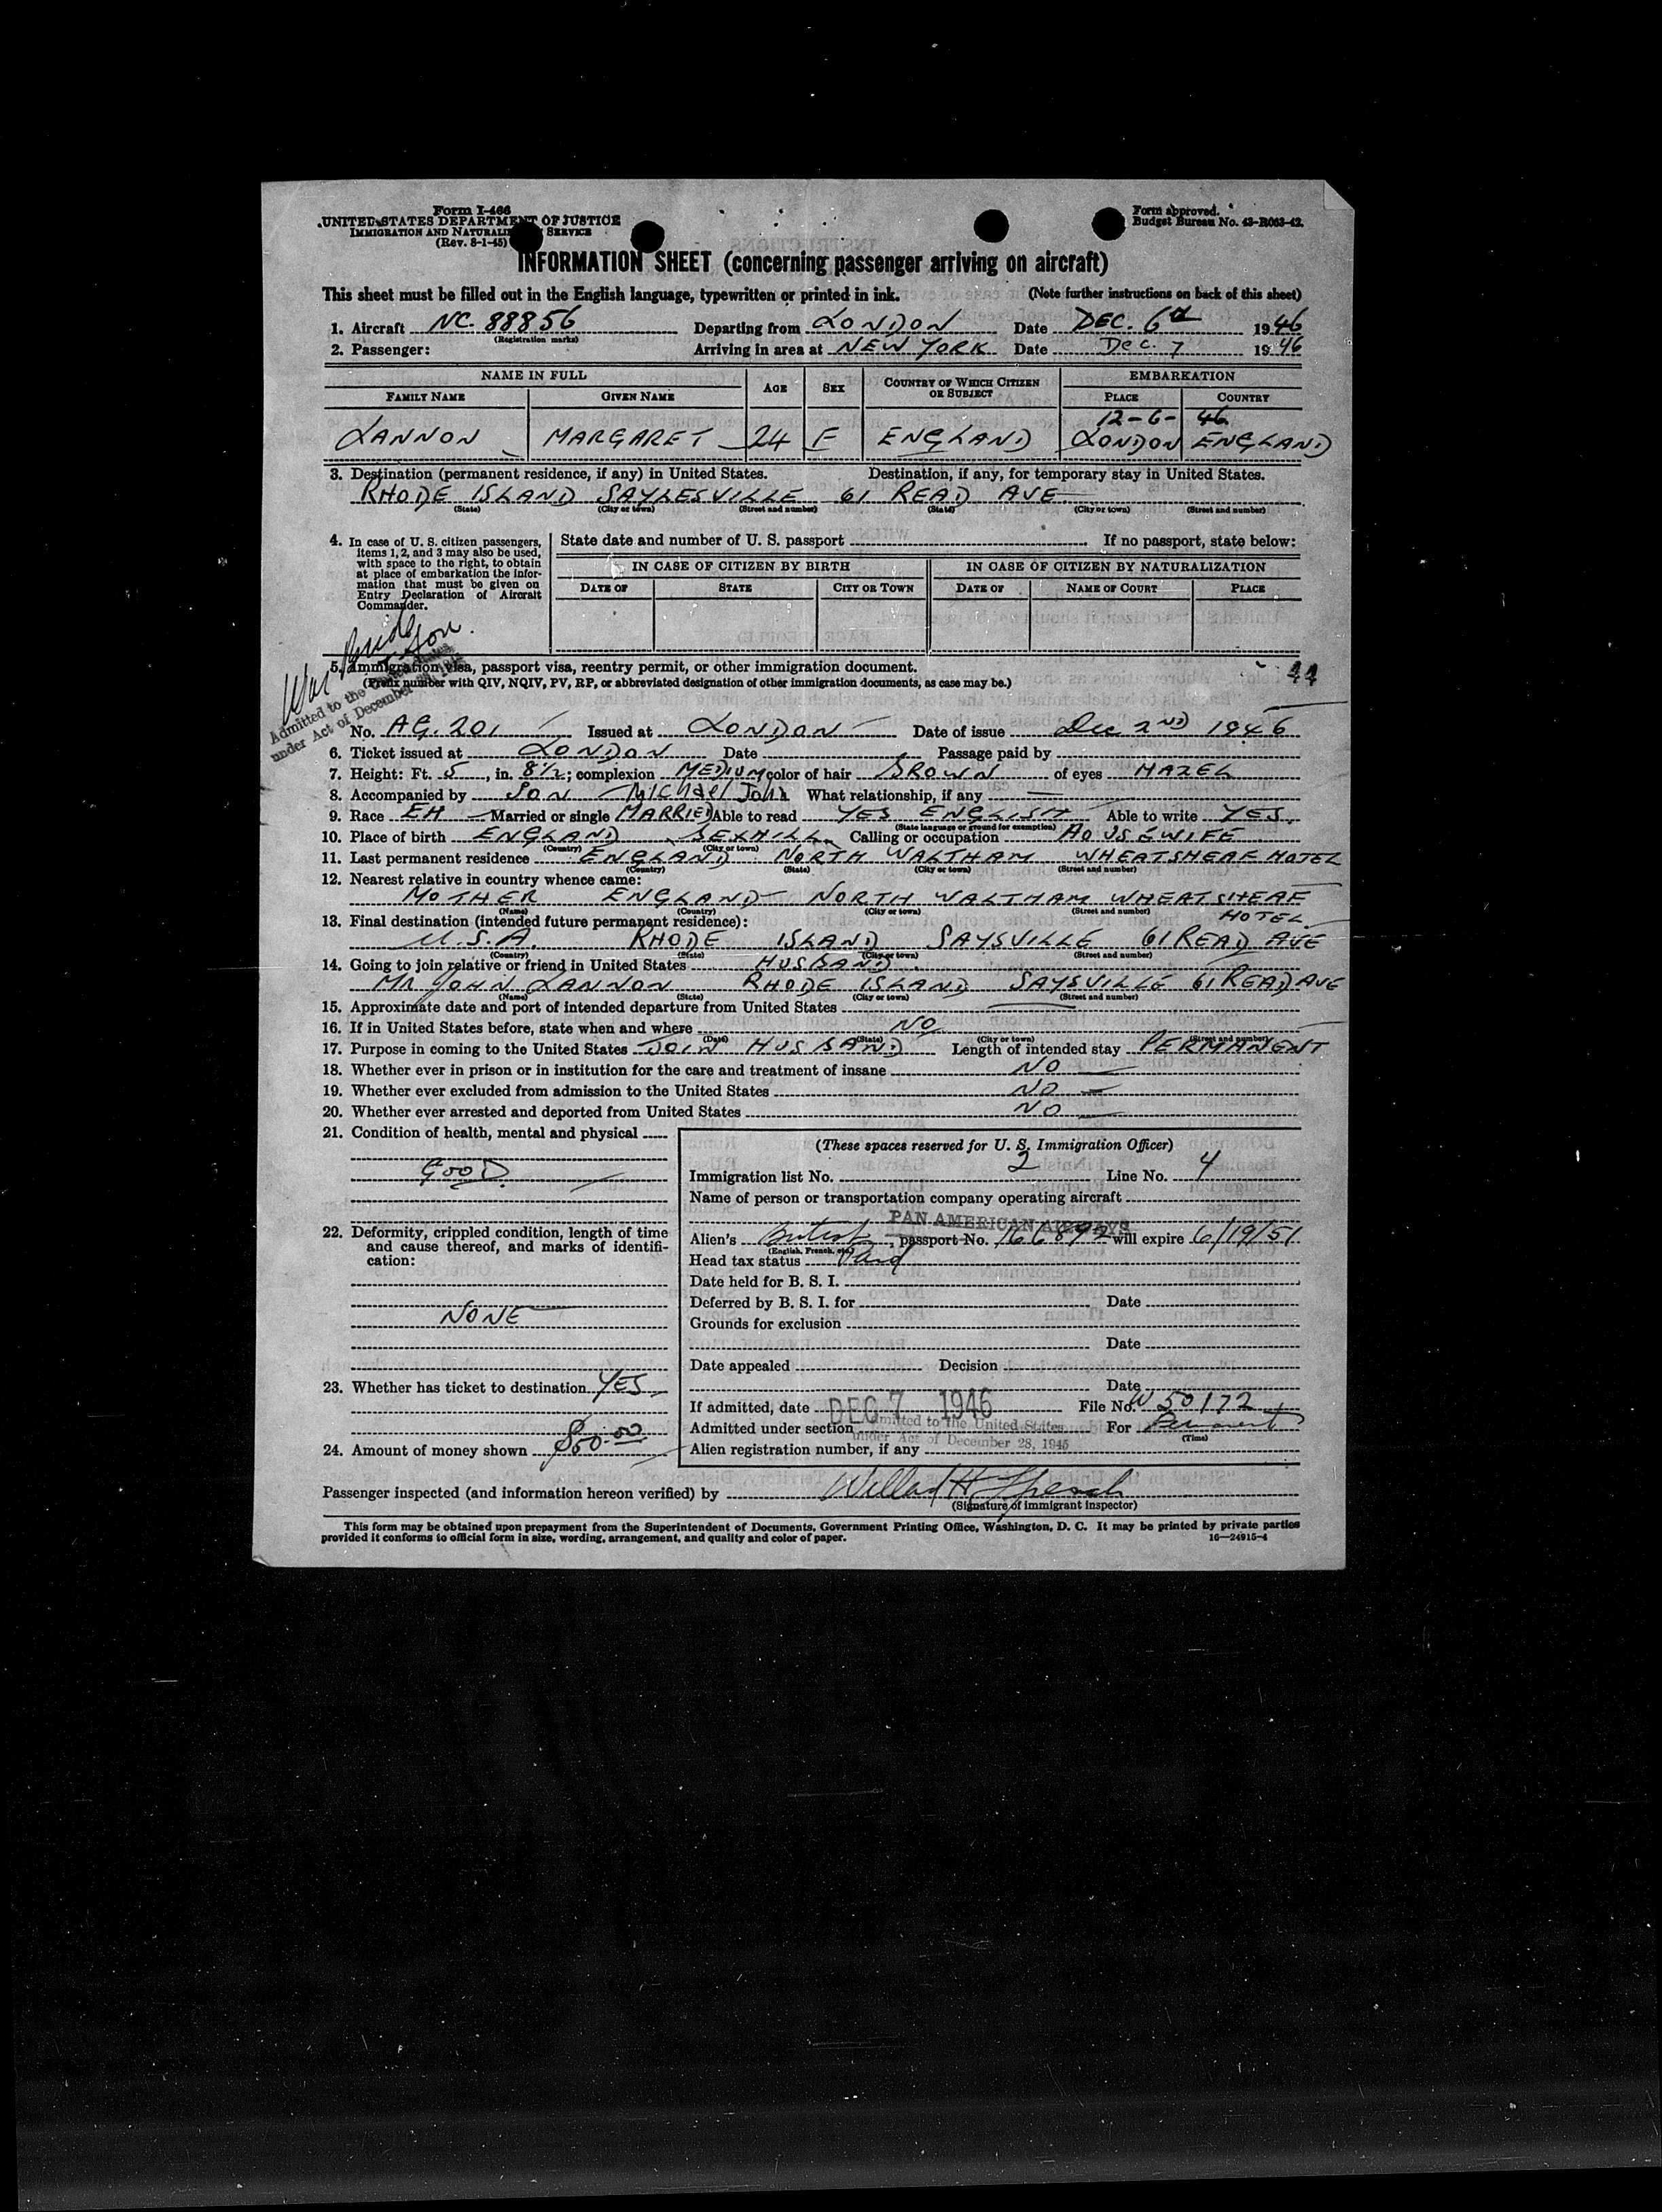 Form I-466
UNITED STATES DEPARTMENT OF JUSTICE
IMMIGRATION AND NATURALIZ SERVICE
(Rev. 8-1-45)
Form approved.
Budget Bureau No. 43-R063-42.
INFORMATION SHEET (concerning passenger arriving on aircraft)
This sheet must be filled out in the English language, typewritten or printed in ink. (Note further instructions on back of this sheet)
1. Aircraft NC. 88856 Departing from LONDON Date DEC. 6th 1946
(Registration marks)
2. Passenger: Arriving in area at NEW YORK Date Dec. 7 1946
NAME IN FULL AGE SEX COUNTRY OF WHICH CITIZEN OR SUBJECT EMBARKATION
FAMILY NAME GIVEN NAME PLACE COUNTRY
12-6-46
LANNON MARGARET 24 F ENGLAND LONDON ENGLAND
3. Destination (permanent residence, if any) in United States. Destination, if any, for temporary stay in United States.
RHODE ISLAND SAYLESVILLE 61 READ AVE
(State) (City or town) (Street and number) (State) (City or town) (Street and number)
4. In case of U. S. citizen passengers, items 1, 2, and 3 may also be used, with space to the right, to obtain at place of embarkation the information that must be given on Entry Declaration of Aircraft Commander.
State date and number of U. S. passport If no passport, state below:
IN CASE OF CITIZEN BY BIRTH IN CASE OF CITIZEN BY NATURALIZATION
DATE OF STATE CITY OR TOWN DATE OF NAME OF COURT PLACE
War Bride
Admitted to the United States
under Act of December 28, 1945
5. Immigration visa, passport visa, reentry permit, or other immigration document.
(Prefix number with QIV, NQIV, PV, RP, or abbreviated designation of other immigration documents, as case may be.)
44
No. AG. 201 Issued at LONDON Date of issue Dec 2ND 1946
6. Ticket issued at LONDON Date Passage paid by
7. Height: Ft. 5, in. 8½; complexion MEDIUM color of hair BROWN of eyes HAZEL
8. Accompanied by SON Michael John What relationship, if any
9. Race EH Married or single MARRIED Able to read YES ENGLISH Able to write YES.
(State language or ground for exemption)
10. Place of birth ENGLAND BEXHILL Calling or occupation HOUSEWIFE
(Country) (City or town)
11. Last permanent residence ENGLAND NORTH WALTHAM WHEATSHEAF HOTEL
(Country) (State) (City or town) (Street and number)
12. Nearest relative in country whence came:
MOTHER ENGLAND NORTH WALTHAM WHEATSHEAF HOTEL
(Name) (Country) (City or town) (Street and number)
13. Final destination (intended future permanent residence):
U.S.A. RHODE ISLAND SAYSVILLE 61 READ AVE
(Country) (State) (City or town) (Street and number)
14. Going to join relative or friend in United States HUSBAND
MR JOHN LANNON RHODE ISLAND SAYSVILLE 61 READ AVE
(Name) (State) (City or town) (Street and number)
15. Approximate date and port of intended departure from United States
16. If in United States before, state when and where NO
(Date) (State) (City or town) (Street and number)
17. Purpose in coming to the United States JOIN HUSBAND Length of intended stay PERMANENT
18. Whether ever in prison or in institution for the care and treatment of insane NO
19. Whether ever excluded from admission to the United States NO
20. Whether ever arrested and deported from United States NO
21. Condition of health, mental and physical
GOOD.
22. Deformity, crippled condition, length of time and cause thereof, and marks of identification:
NONE
23. Whether has ticket to destination YES
24. Amount of money shown $50.00
(These spaces reserved for U. S. Immigration Officer)
Immigration list No. 2 Line No. 4
Name of person or transportation company operating aircraft
PAN AMERICAN AIRWAYS
Alien's British, passport No. 166892 will expire 6/19/51
(English, French, etc.)
Head tax status Paid
Date held for B. S. I.
Deferred by B. S. I. for Date
Grounds for exclusion
Date
Date appealed Decision
Date
If admitted, date DEC 7 1946 File No. W 50172
Admitted under section Admitted to the United States For Permanent
under Act of December 28, 1945
(Time)
Alien registration number, if any
Passenger inspected (and information hereon verified) by
(Signature of immigrant inspector)
This form may be obtained upon prepayment from the Superintendent of Documents, Government Printing Office, Washington, D. C. It may be printed by private parties
provided it conforms to official form in size, wording, arrangement, and quality and color of paper. 16—24915-4